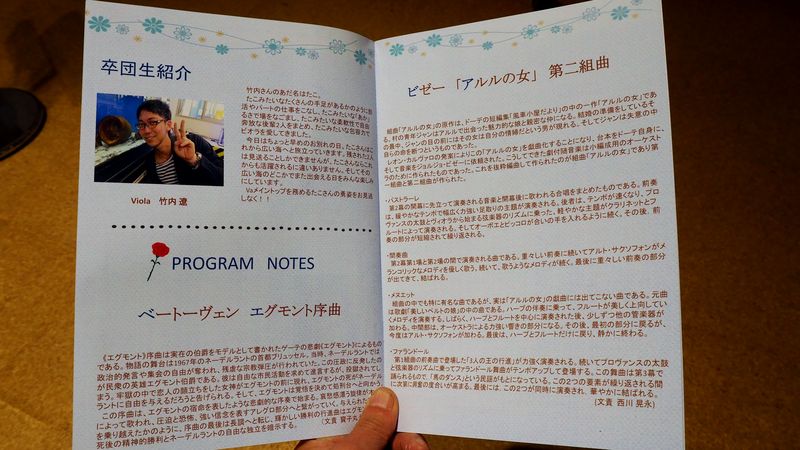 卒団生紹介
竹内さんのあだ名はたこ。
たこみたいなたくさんの手足があるかのように部
活やパートの仕事をこなし、たこみたいな「あか」
るさで場をなごまし、たこみたいな柔軟性で自由
奔放な後輩2人をまとめ、たこみたいな包容力で
ビオラを愛してきました。
今日はちょっと早めのお別れの日。たこさんはこ
れから広い海へと旅立っていきます。残された3人
は見送ることしかできませんが、たこさんならこれ
からも活躍されるに違いありません。そしてその
広い海のどこかでまた出会える日をみんな楽しみ
にしています。
Vaメイントップを務めるたこさんの勇姿をお見逃
しなく!!
Viola 竹内 遼
PROGRAM NOTES
ベートーヴェン エグモント序曲
《エグモント》序曲は実在の伯爵をモデルとして書かれたゲーテの悲劇《エグモント》によるもの
である。物語の舞台は1967年のネーデルラントの首都ブリュッセル。当時、ネーデルラントでは
政治的発言や集会の自由が奪われ、残虐な宗教弾圧が行われていた。この圧政に反発したの
が民衆の英雄エグモント伯爵である。彼は自由な市民活動を求めて進言するが、投獄されてし
まう。牢獄の中で恋人の頭立ちをした女神がエグモントの前に現れ、エグモントの死がネーデル
ラントに自由を与えるだろうと告げられる。そして、エグモントは覚悟を決めて処刑台へと向かう。
この序曲は、エグモントの宿命を表したような悲劇的な序奏で始まる。哀愁感漂う旋律が木管
によって歌われ、圧迫と恐怖、強い信念を表すアレグロ部分へと繋がっていく。与えられた
を乗り越えたかのように、序曲の最後は長調へと転じ、輝かしい勝利の行進曲はエグモントの
死後の精神的勝利とネーデルラントの自由な独立を暗示する。
ビゼー 「アルルの女」 第二組曲
組曲「アルルの女」の原作は、ドーデの短編集「風車小屋だより」の中の一作「アルルの女」であ
る。村の青年ジャンはアルルで出会った魅力的な娘と親密な仲になる。結婚の準備をしているそ
の最中、ジャンの目の前にはその女は自分の情婦だという男が現れる。そしてジャンは失意の中
自らの命を断つというものであった。
レオン・カルヴァロの発案によりこの「アルルの女」を戯曲化することになり、台本をドーデ自身に、
そして音楽をジョルジュ・ビゼーに依頼された。こうしてできた劇付随音楽は小編成用のオーケスト
ラのために作られたものであった。これを抜粋編曲して作られたのが組曲「アルルの女」であり第
一組曲と第二組曲が作られた。
・パストラーレ
第2幕の開幕に先立って演奏される音楽と開幕後に歌われる合唱をまとめたものである。前奏
は、緩やかなテンポで幅広く力強い足取りの主題が演奏される。後者は、テンポが速くなり、プロ
ヴァンスの太鼓とヴィオラから始まる弦楽器のリズムに乗った、軽やかな主題がクラリネットとフ
ルートによって演奏される。そしてオーボエとピッコロが合いの手を入れるように続く。その後、前
奏の部分が短縮されて繰り返される。
・間奏曲
第2幕第1場と第2場の間で演奏される曲である。重々しい前奏に続いてアルト・サクソフォンがメ
ランコリックなメロディを優しく歌う。続いて、歌うようなメロディが続く。最後に重々しい前奏の部分
が出てきて、結ばれる。
・メヌエット
組曲の中でも特に有名な曲であるが、実は「アルルの女」の戯曲には出てこない曲である。元曲
は歌劇「美しいペルトの娘」の中の曲である。ハープの伴奏に乗って、フルートが美しく上向してい
くメロディを演奏する。しばらく、ハープとフルートを中心に演奏された後、少しずつ他の管楽器が
加わる。中間部は、オーケストラによる力強い響きの部分になる。その後、最初の部分に戻るが、
今度はアルト・サクソフォンが加わる。最後は、ハープとフルートだけに戻り、静かに終わる。
・ファランドール
第1組曲の前奏曲で登場した「3人の王の行進」が力強く演奏される。続いてプロヴァンスの太鼓
と弦楽器のリズムに乗ってファランドール舞曲がテンポアップして登場する。この舞曲は第3幕で
踊られるもので、「馬のダンス」という民謡がもとになっている。この2つの要素が繰り返される間
に次第に興奮の度合いが高まる。最後には、この2つが同時に演奏され、華やかに結ばれる。
(文責 西川 晃永)